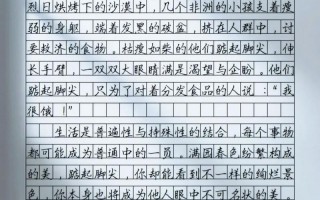 烈日烘烤下的沙漠中，几个非洲的小孩支着瘦
弱的身躯，端着发黑的破盆，挤在人群中，讨
要救济的食物，枯瘦如柴的他们踮起脚尖，伸
长手臂，一双双大眼睛满是渴望与企盼。他们
踮起脚尖，只为了对着分发食品的人说：“我
很饿！”
生活是普遍性与特殊性的结合，每个事物
都可能成为普通中的一员。满园春色纷繁构成
的美，踮起脚尖，你却能看到不一样的绚烂景
色，你本身也将成为他人眼中不可名状的美。